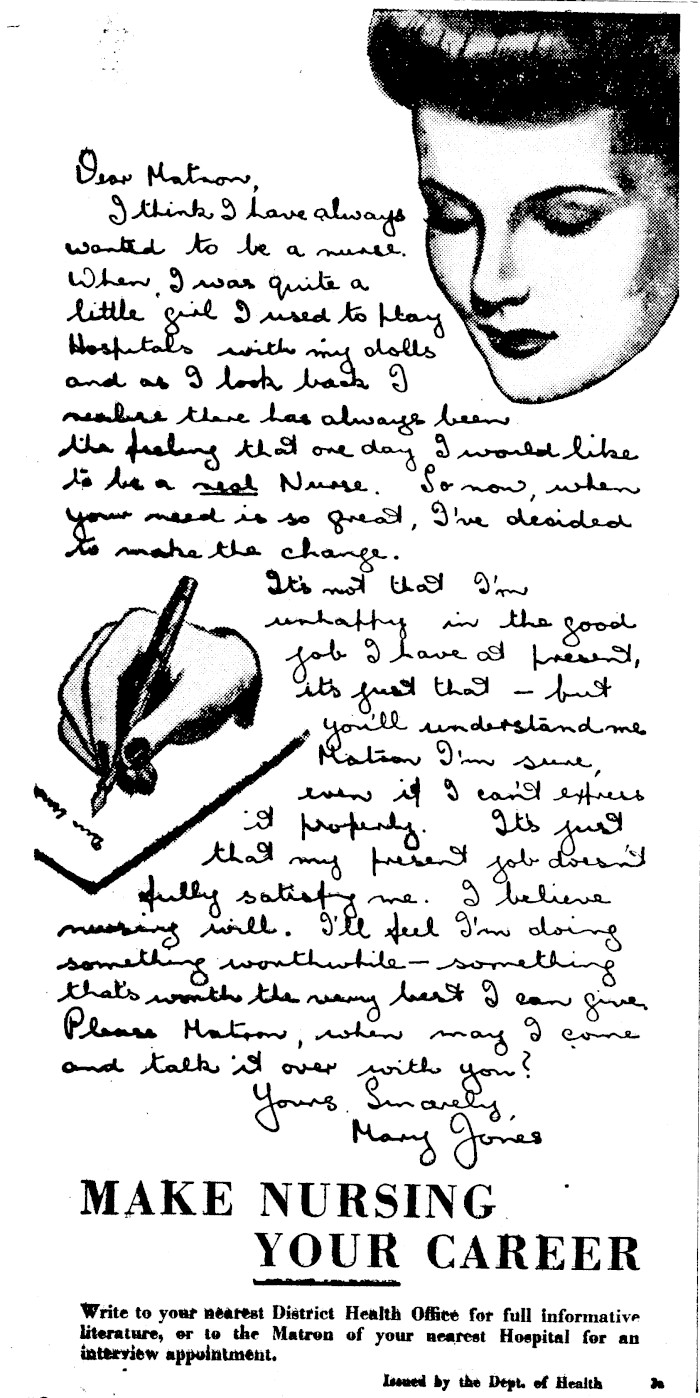 Dear Matron,
I think I have always
wanted to be a nurse.
When, I was quite a
little girl I used to play
Hospitals with my dolls
and as I look back I
realise there has always been
the feeling that one day I would like
to be a real Nurse. So now, when
your need is so great, I've decided
to make the change.
It's not that I'm
unhappy in the good
job I have at present,
it's just that – but
you'll understand me
Matron I'm sure,
even if I can't express
it properly. It's just
that my present job doesn't
fully satisfy me. I believe
nursing will. I'll feel I'm doing
something worthwhile – something
that's worth the very best I can give.
Please Matron, when may I come
and talk it over with you?
Yours Sincerely,
Mary Jones
MAKE NURSING
YOUR CAREER
Write to your nearest District Health Office for full informative
literature, or to the Matron of your nearest Hospital for an
interview appointment.
Issued by the Dept. of Health